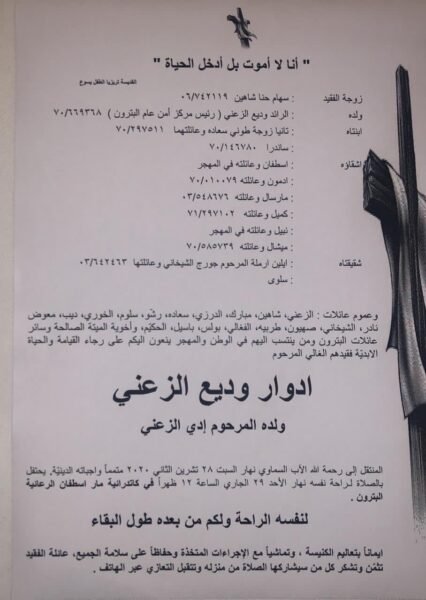 " أنا لا أموت بل أدخل الحياة "
القديسة تريزيا الطفل يسوع
زوجة الفقيد : سهام حنا شاهين ٠٦/٧٤٢١١٩
ولده : الرائد وديع الزعني ( رئيس مركز أمن عام البترون ) ٧٠/٦٦٩٣٦٨
ابنتاه : تانيا زوجة طوني سعاده وعائلتهما ٧٠/٢٩٧٥١١
ساندرا ٧٠/١٤٦٧٨٠
اشقاؤه : اسطفان وعائلته في المهجر
: ادمون وعائلته ٧٠/٠١٠٠٧٩
: مارسال وعائلته ٠٣/٥٤٨٦٧٦
: كميل وعائلته ٧١/٢٩٧١٠٢
: نبيل وعائلته في المهجر
: ميشال وعائلته ٧٠/٥٨٥٧٣٩
شقيقتاه : ايلين ارملة المرحوم جورج الشيخاني وعائلتها ٠٣/٦٤٢٤٦٣
: سلوى
وعموم عائلات : الزعني، شاهين، مبارك، الدرزي، سعاده، رشّو، سلوم، الخوري، ديب، معوض
نادر، الشيخاني، صهيون، طربيه، الفغالي، بولس، باسيل، الحكيّم، وأخوية الميتة الصالحة وسائر
عائلات البترون ومن ينتسب اليهم في الوطن والمهجر ينعون اليكم على رجاء القيامة والحياة
الابديّة فقيدهم الغالي المرحوم
ادوار وديع الزعني
ولده المرحوم إدي الزعني
المنتقل إلى رحمة الله الأب السماوي نهار السبت ٢٨ تشرين الثاني ٢٠٢٠ متمماً واجباته الدينيّة. يحتفل
بالصلاة لراحة نفسه نهار الأحد ٢٩ الجاري الساعة ١٢ ظهراً في كاتدرائية مار اسطفان الرعائية
البترون .
لنفسه الراحة ولكم من بعده طول البقاء
ايماناً بتعاليم الكنيسة ، وتماشياً مع الإجراءات المتخذة وحفاظاً على سلامة الجميع، عائلة الفقيد
تثمّن وتشكر كل من سيشاركها الصلاة من منزله وتتقبل التعازي عبر الهاتف .